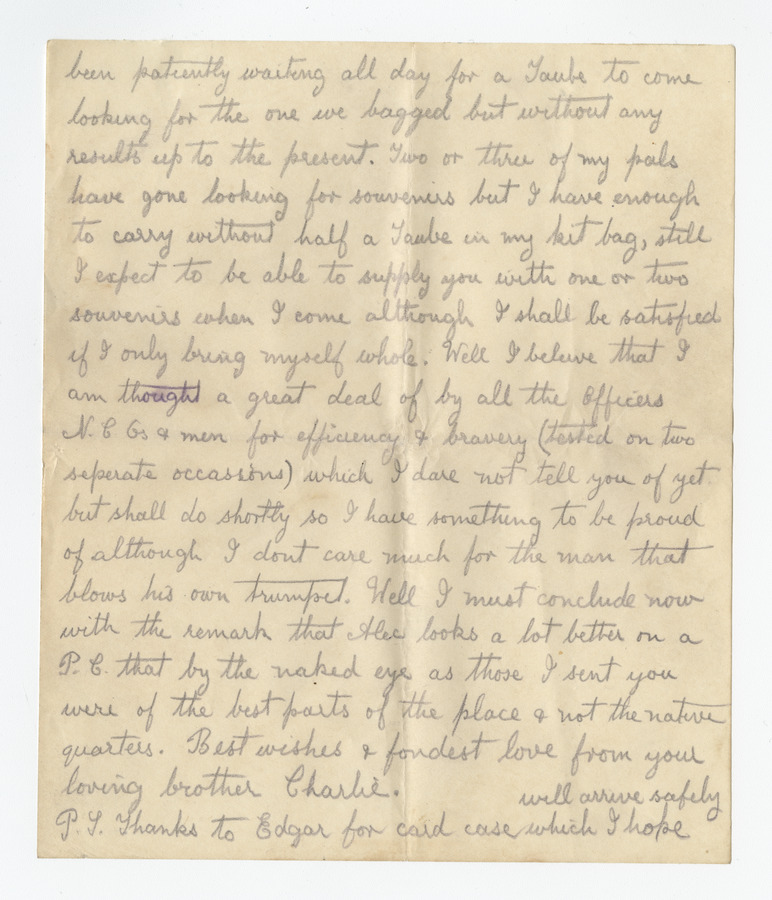 been patiently waiting all day for a Taube to come
looking for the one we bagged but without any
results up to the present. Two or three of my pals
have gone looking for souvenirs but I have enough
to carry without half a Taube in my kit bag, still
I expect to be able to supply you with one or two
souvenirs when I come although I shall be satisfied
if I only bring myself whole. Well I beleive that I
am thought a great deal of by all the Officers
N.C.Os & men for efficiency & bravery (tested on two
seperate occassions) which I dare not tell you of yet
but shall do shortly so I have something to be proud
of although I dont care much for the man that
blows his own trumpet. Well I must conclude now
with the remark that Alec looks a lot better on a
P.C. that by the naked eye as those I sent you
were of the best parts of the place & not the native
quarters. Best wishes & fondest love from your
loving brother Charlie.
will arrive safely
P.S. Thanks to Edgar for card case which I hope